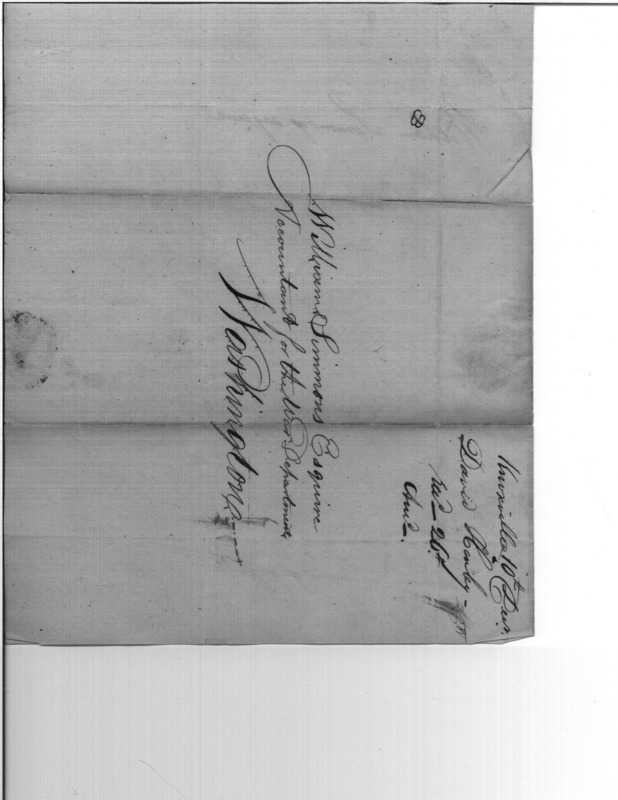 William Simmons Esquire
Accountant for the War Department
Washington
Knoxville 10th Decr.
David Henley
recd 26th
Ansd.